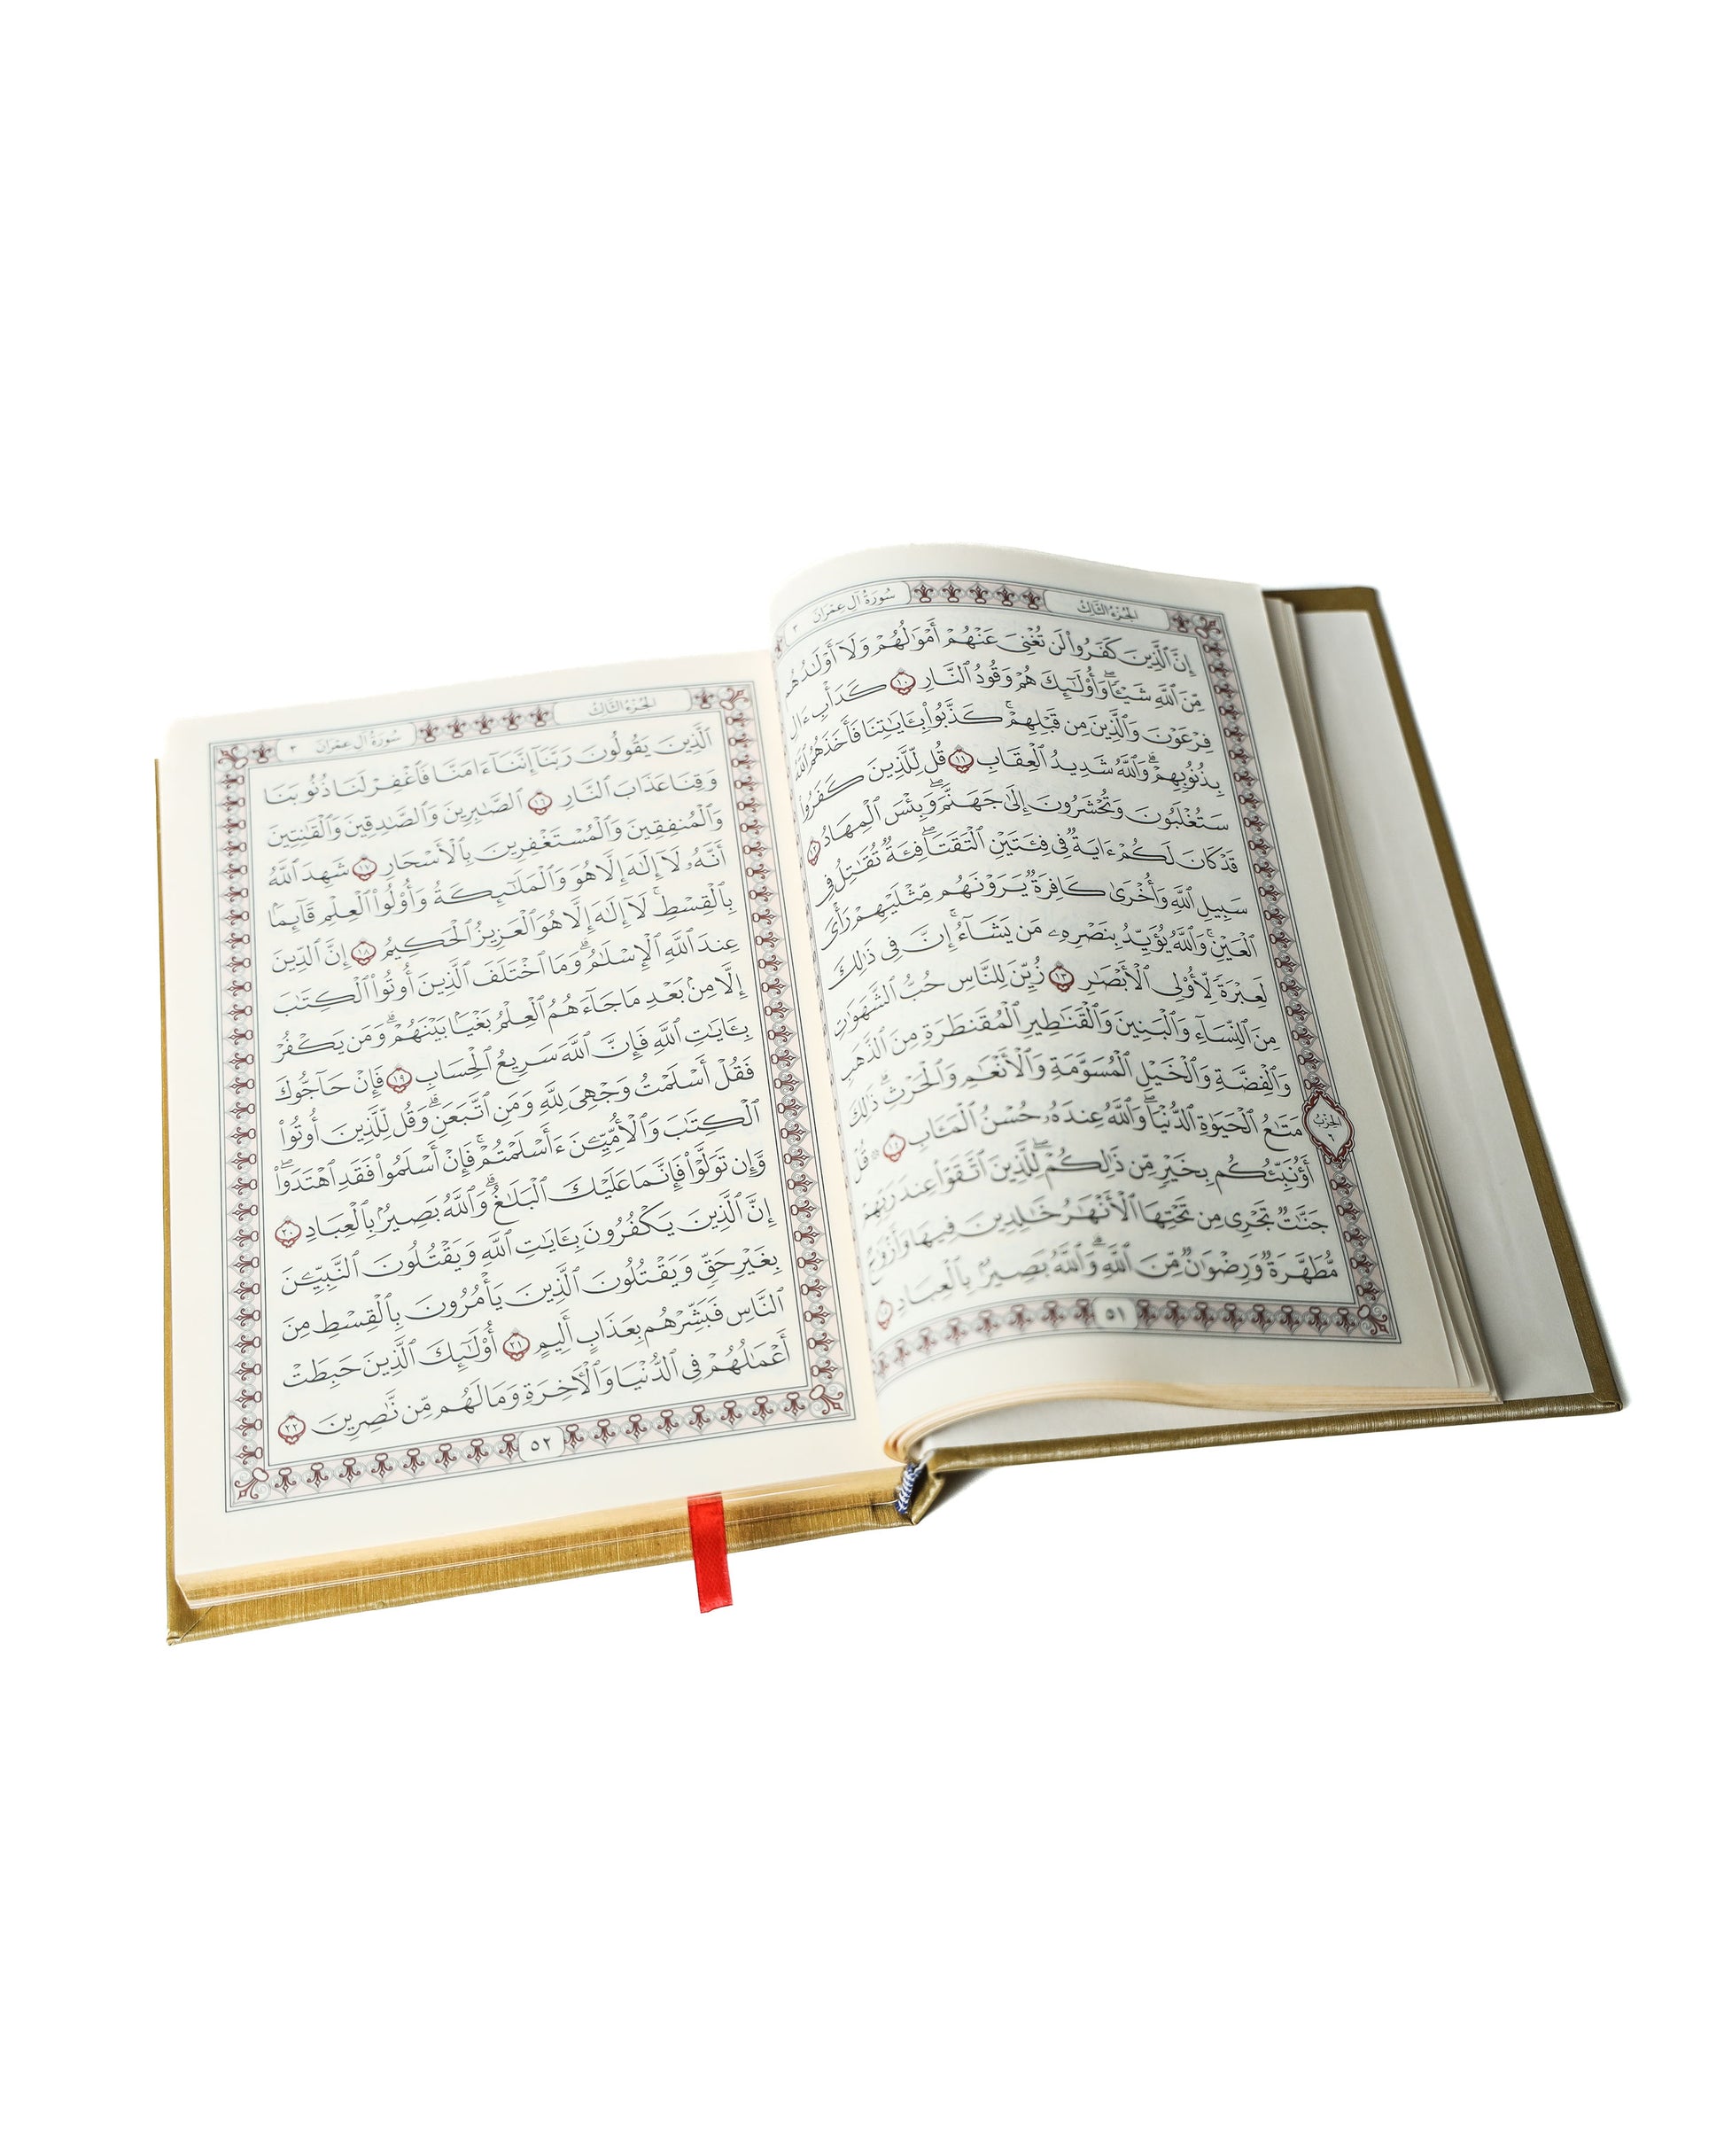 الجزء الثالث
سورة آل عمران ٣
إِنَّ ٱلَّذِينَ كَفَرُوا۟ لَن تُغْنِىَ عَنْهُمْ أَمْوَٰلُهُمْ وَلَآ أَوْلَٰدُهُم
مِّنَ ٱللَّهِ شَيْـًٔا ۖ وَأُو۟لَٰٓئِكَ هُمْ وَقُودُ ٱلنَّارِ ١٠ كَدَأْبِ ءَالِ
فِرْعَوْنَ وَٱلَّذِينَ مِن قَبْلِهِمْ ۚ كَذَّبُوا۟ بِـَٔايَٰتِنَا فَأَخَذَهُمُ ٱللَّهُ
بِذُنُوبِهِمْ ۗ وَٱللَّهُ شَدِيدُ ٱلْعِقَابِ ١١ قُل لِّلَّذِينَ كَفَرُوا۟
سَتُغْلَبُونَ وَتُحْشَرُونَ إِلَىٰ جَهَنَّمَ ۚ وَبِئْسَ ٱلْمِهَادُ ١٢
قَدْ كَانَ لَكُمْ ءَايَةٌ فِى فِئَتَيْنِ ٱلْتَقَتَا ۖ فِئَةٌ تُقَٰتِلُ فِى
سَبِيلِ ٱللَّهِ وَأُخْرَىٰ كَافِرَةٌ يَرَوْنَهُم مِّثْلَيْهِمْ رَأْىَ
ٱلْعَيْنِ ۚ وَٱللَّهُ يُؤَيِّدُ بِنَصْرِهِۦ مَن يَشَآءُ ۗ إِنَّ فِى ذَٰلِكَ
لَعِبْرَةً لِّأُو۟لِى ٱلْأَبْصَٰرِ ١٣ زُيِّنَ لِلنَّاسِ حُبُّ ٱلشَّهَوَٰتِ
مِنَ ٱلنِّسَآءِ وَٱلْبَنِينَ وَٱلْقَنَٰطِيرِ ٱلْمُقَنطَرَةِ مِنَ ٱلذَّهَبِ
وَٱلْفِضَّةِ وَٱلْخَيْلِ ٱلْمُسَوَّمَةِ وَٱلْأَنْعَٰمِ وَٱلْحَرْثِ ۗ ذَٰلِكَ
مَتَٰعُ ٱلْحَيَوٰةِ ٱلدُّنْيَا ۖ وَٱللَّهُ عِندَهُۥ حُسْنُ ٱلْمَـَٔابِ ١٤ ۞ قُلْ
الحزب ٦
أَؤُنَبِّئُكُم بِخَيْرٍ مِّن ذَٰلِكُمْ ۚ لِلَّذِينَ ٱتَّقَوْا۟ عِندَ رَبِّهِمْ
جَنَّٰتٌ تَجْرِى مِن تَحْتِهَا ٱلْأَنْهَٰرُ خَٰلِدِينَ فِيهَا وَأَزْوَٰجٌ
مُّطَهَّرَةٌ وَرِضْوَٰنٌ مِّنَ ٱللَّهِ ۗ وَٱللَّهُ بَصِيرٌۢ بِٱلْعِبَادِ ١٥
٥١
الجزء الثالث
سورة آل عمران ٣
ٱلَّذِينَ يَقُولُونَ رَبَّنَآ إِنَّنَآ ءَامَنَّا فَٱغْفِرْ لَنَا ذُنُوبَنَا
وَقِنَا عَذَابَ ٱلنَّارِ ١٦ ٱلصَّٰبِرِينَ وَٱلصَّٰدِقِينَ وَٱلْقَٰنِتِينَ
وَٱلْمُنفِقِينَ وَٱلْمُسْتَغْفِرِينَ بِٱلْأَسْحَارِ ١٧ شَهِدَ ٱللَّهُ
أَنَّهُۥ لَآ إِلَٰهَ إِلَّا هُوَ وَٱلْمَلَٰٓئِكَةُ وَأُو۟لُوا۟ ٱلْعِلْمِ قَآئِمًۢا
بِٱلْقِسْطِ ۚ لَآ إِلَٰهَ إِلَّا هُوَ ٱلْعَزِيزُ ٱلْحَكِيمُ ١٨ إِنَّ ٱلدِّينَ
عِندَ ٱللَّهِ ٱلْإِسْلَٰمُ ۗ وَمَا ٱخْتَلَفَ ٱلَّذِينَ أُوتُوا۟ ٱلْكِتَٰبَ
إِلَّا مِنۢ بَعْدِ مَا جَآءَهُمُ ٱلْعِلْمُ بَغْيًۢا بَيْنَهُمْ ۗ وَمَن يَكْفُرْ
بِـَٔايَٰتِ ٱللَّهِ فَإِنَّ ٱللَّهَ سَرِيعُ ٱلْحِسَابِ ١٩ فَإِنْ حَآجُّوكَ
فَقُلْ أَسْلَمْتُ وَجْهِىَ لِلَّهِ وَمَنِ ٱتَّبَعَنِ ۗ وَقُل لِّلَّذِينَ أُوتُوا۟
ٱلْكِتَٰبَ وَٱلْأُمِّيِّـۧنَ ءَأَسْلَمْتُمْ ۚ فَإِنْ أَسْلَمُوا۟ فَقَدِ ٱهْتَدَوا۟ ۖ
وَّإِن تَوَلَّوْا۟ فَإِنَّمَا عَلَيْكَ ٱلْبَلَٰغُ ۗ وَٱللَّهُ بَصِيرٌۢ بِٱلْعِبَادِ ٢٠
إِنَّ ٱلَّذِينَ يَكْفُرُونَ بِـَٔايَٰتِ ٱللَّهِ وَيَقْتُلُونَ ٱلنَّبِيِّـۧنَ
بِغَيْرِ حَقٍّ وَيَقْتُلُونَ ٱلَّذِينَ يَأْمُرُونَ بِٱلْقِسْطِ مِنَ
ٱلنَّاسِ فَبَشِّرْهُم بِعَذَابٍ أَلِيمٍ ٢١ أُو۟لَٰٓئِكَ ٱلَّذِينَ حَبِطَتْ
أَعْمَٰلُهُمْ فِى ٱلدُّنْيَا وَٱلْـَٔاخِرَةِ وَمَا لَهُم مِّن نَّٰصِرِينَ ٢٢
٥٢